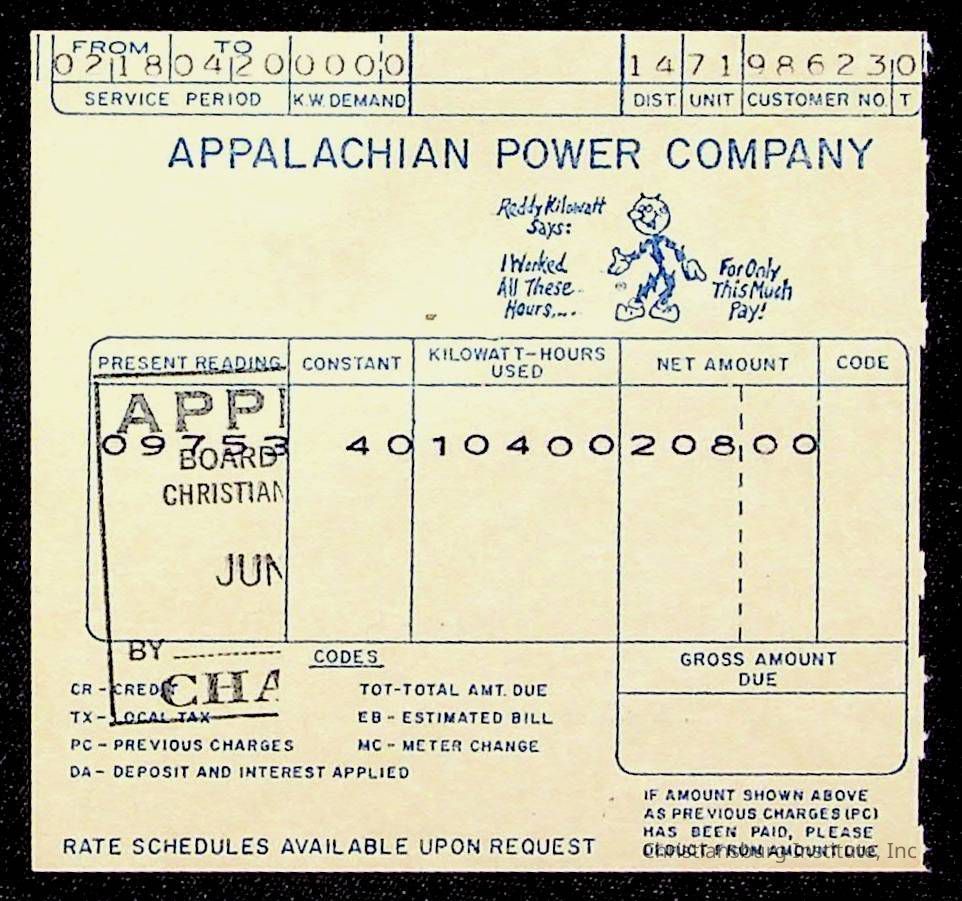 FROM TO
0218 0420 0000 14 71 986230
SERVICE PERIOD K.W. DEMAND DIST. UNIT CUSTOMER NO. T
APPALACHIAN POWER COMPANY
Reddy Kilowatt
Says:
I Worked
All These
Hours,...
For Only
This Much
Pay!
PRESENT READING CONSTANT KILOWATT-HOURS USED NET AMOUNT CODE
APP
09753 40 10400 20800
BOARD
CHRISTIAN
JUN
BY
CHA
CODES
GROSS AMOUNT
DUE
CR - CREDIT TOT-TOTAL AMT. DUE
TX - LOCAL TAX EB - ESTIMATED BILL
PC - PREVIOUS CHARGES MC - METER CHANGE
DA - DEPOSIT AND INTEREST APPLIED
IF AMOUNT SHOWN ABOVE
AS PREVIOUS CHARGES (PC)
HAS BEEN PAID, PLEASE
DEDUCT FROM AMOUNT DUE
RATE SCHEDULES AVAILABLE UPON REQUEST
Christiansburg Institute, Inc